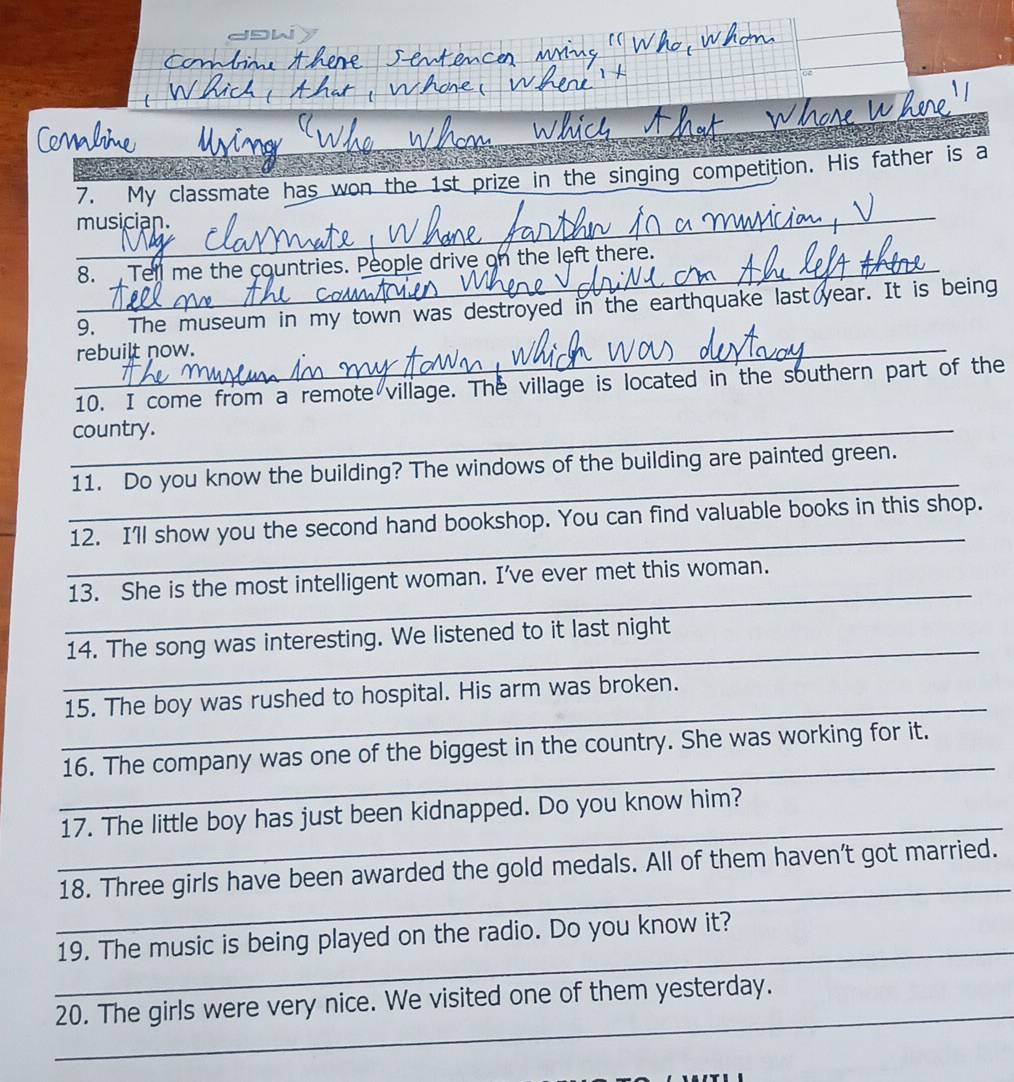 combine there sentences using "Who, whom
, which, that, whose, where" +
Combine Using "Who whom which that whose where"
7. My classmate has won the 1st prize in the singing competition. His father is a
musician.
My classmate, whose farther is a musician, V
8. Tell me the countries. People drive on the left there.
teel me the countries where V drive on the left there
9. The museum in my town was destroyed in the earthquake last year. It is being
rebuilt now.
the museum in my town, which was destroy
10. I come from a remote village. The village is located in the southern part of the
country.
11. Do you know the building? The windows of the building are painted green.
12. I'll show you the second hand bookshop. You can find valuable books in this shop.
13. She is the most intelligent woman. I've ever met this woman.
14. The song was interesting. We listened to it last night
15. The boy was rushed to hospital. His arm was broken.
16. The company was one of the biggest in the country. She was working for it.
17. The little boy has just been kidnapped. Do you know him?
18. Three girls have been awarded the gold medals. All of them haven't got married.
19. The music is being played on the radio. Do you know it?
20. The girls were very nice. We visited one of them yesterday.